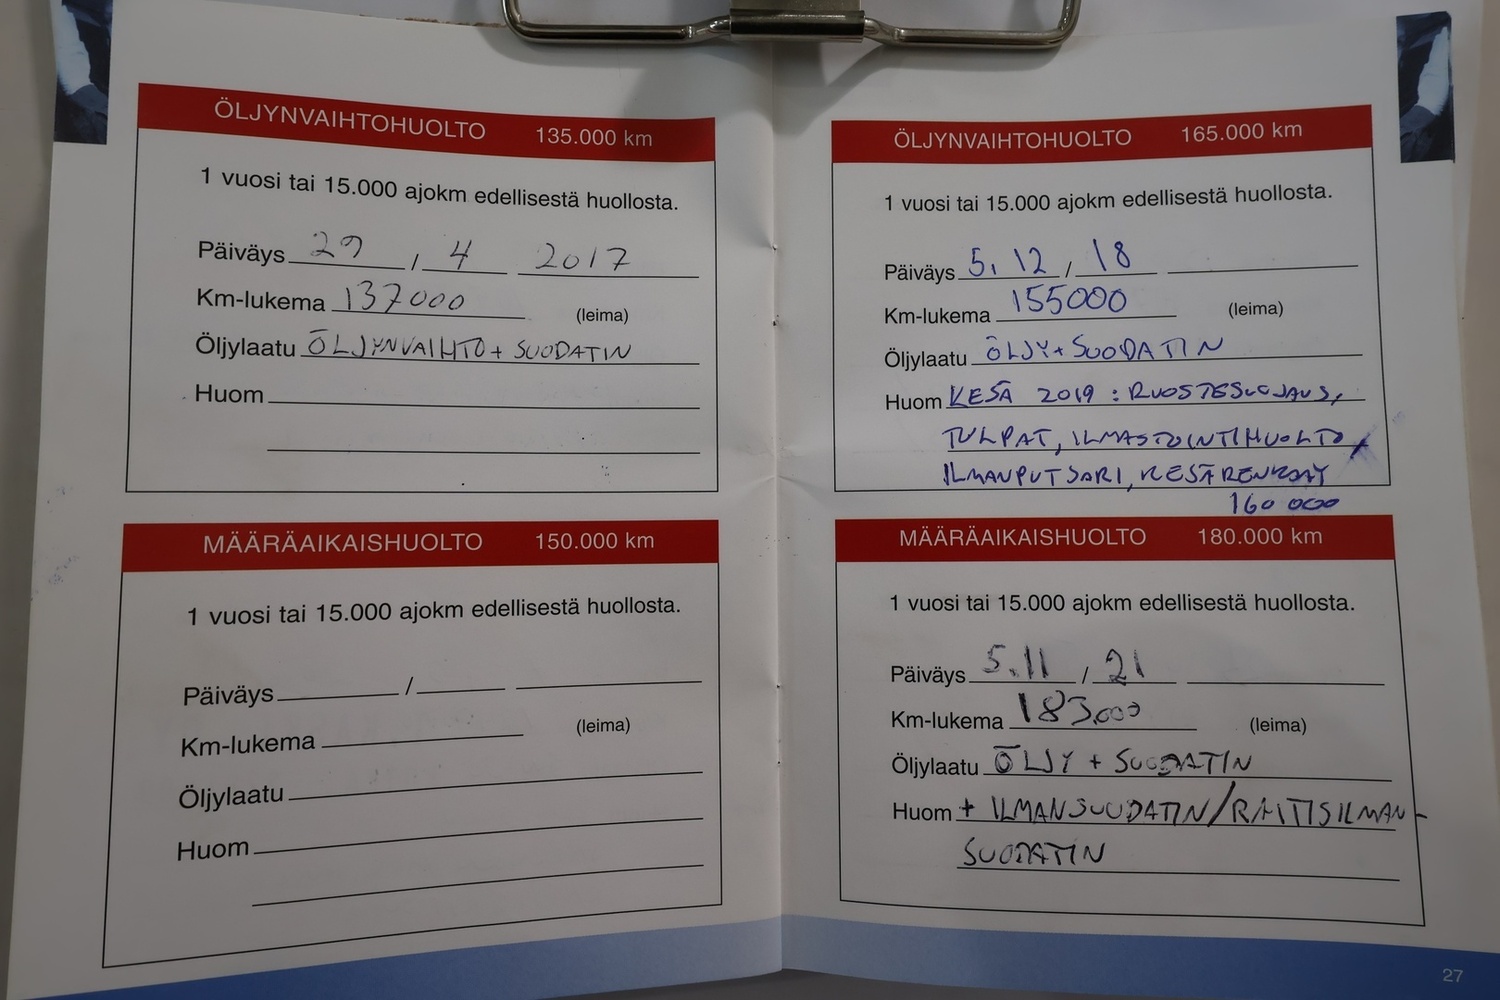 ÖLJYNVAIHTOHUOLTO 135.000 km
1 vuosi tai 15.000 ajokm edellisestä huollosta.
Päiväys 29 / 4 2017
Km-lukema 137000 (leima)
Öljylaatu ÖLJYNVAIHTO + SUODATIN
Huom
MÄÄRÄAIKAISHUOLTO 150.000 km
1 vuosi tai 15.000 ajokm edellisestä huollosta.
Päiväys /
Km-lukema (leima)
Öljylaatu
Huom
ÖLJYNVAIHTOHUOLTO 165.000 km
1 vuosi tai 15.000 ajokm edellisestä huollosta.
Päiväys 5.12 / 18
Km-lukema 155000 (leima)
Öljylaatu ÖLJY + SUODATIN
Huom KESÄ 2019 : RUOSTESUOJAUS,
TULPAT, ILMASTOINTIHUOLTO,
ILMANPUTSARI, KESÄRENKAAT
160 000
MÄÄRÄAIKAISHUOLTO 180.000 km
1 vuosi tai 15.000 ajokm edellisestä huollosta.
Päiväys 5.11 / 21
Km-lukema 183.000 (leima)
Öljylaatu ÖLJY + SUODATIN
Huom + ILMANSUODATIN/RAITISILMAN-
SUODATIN
27